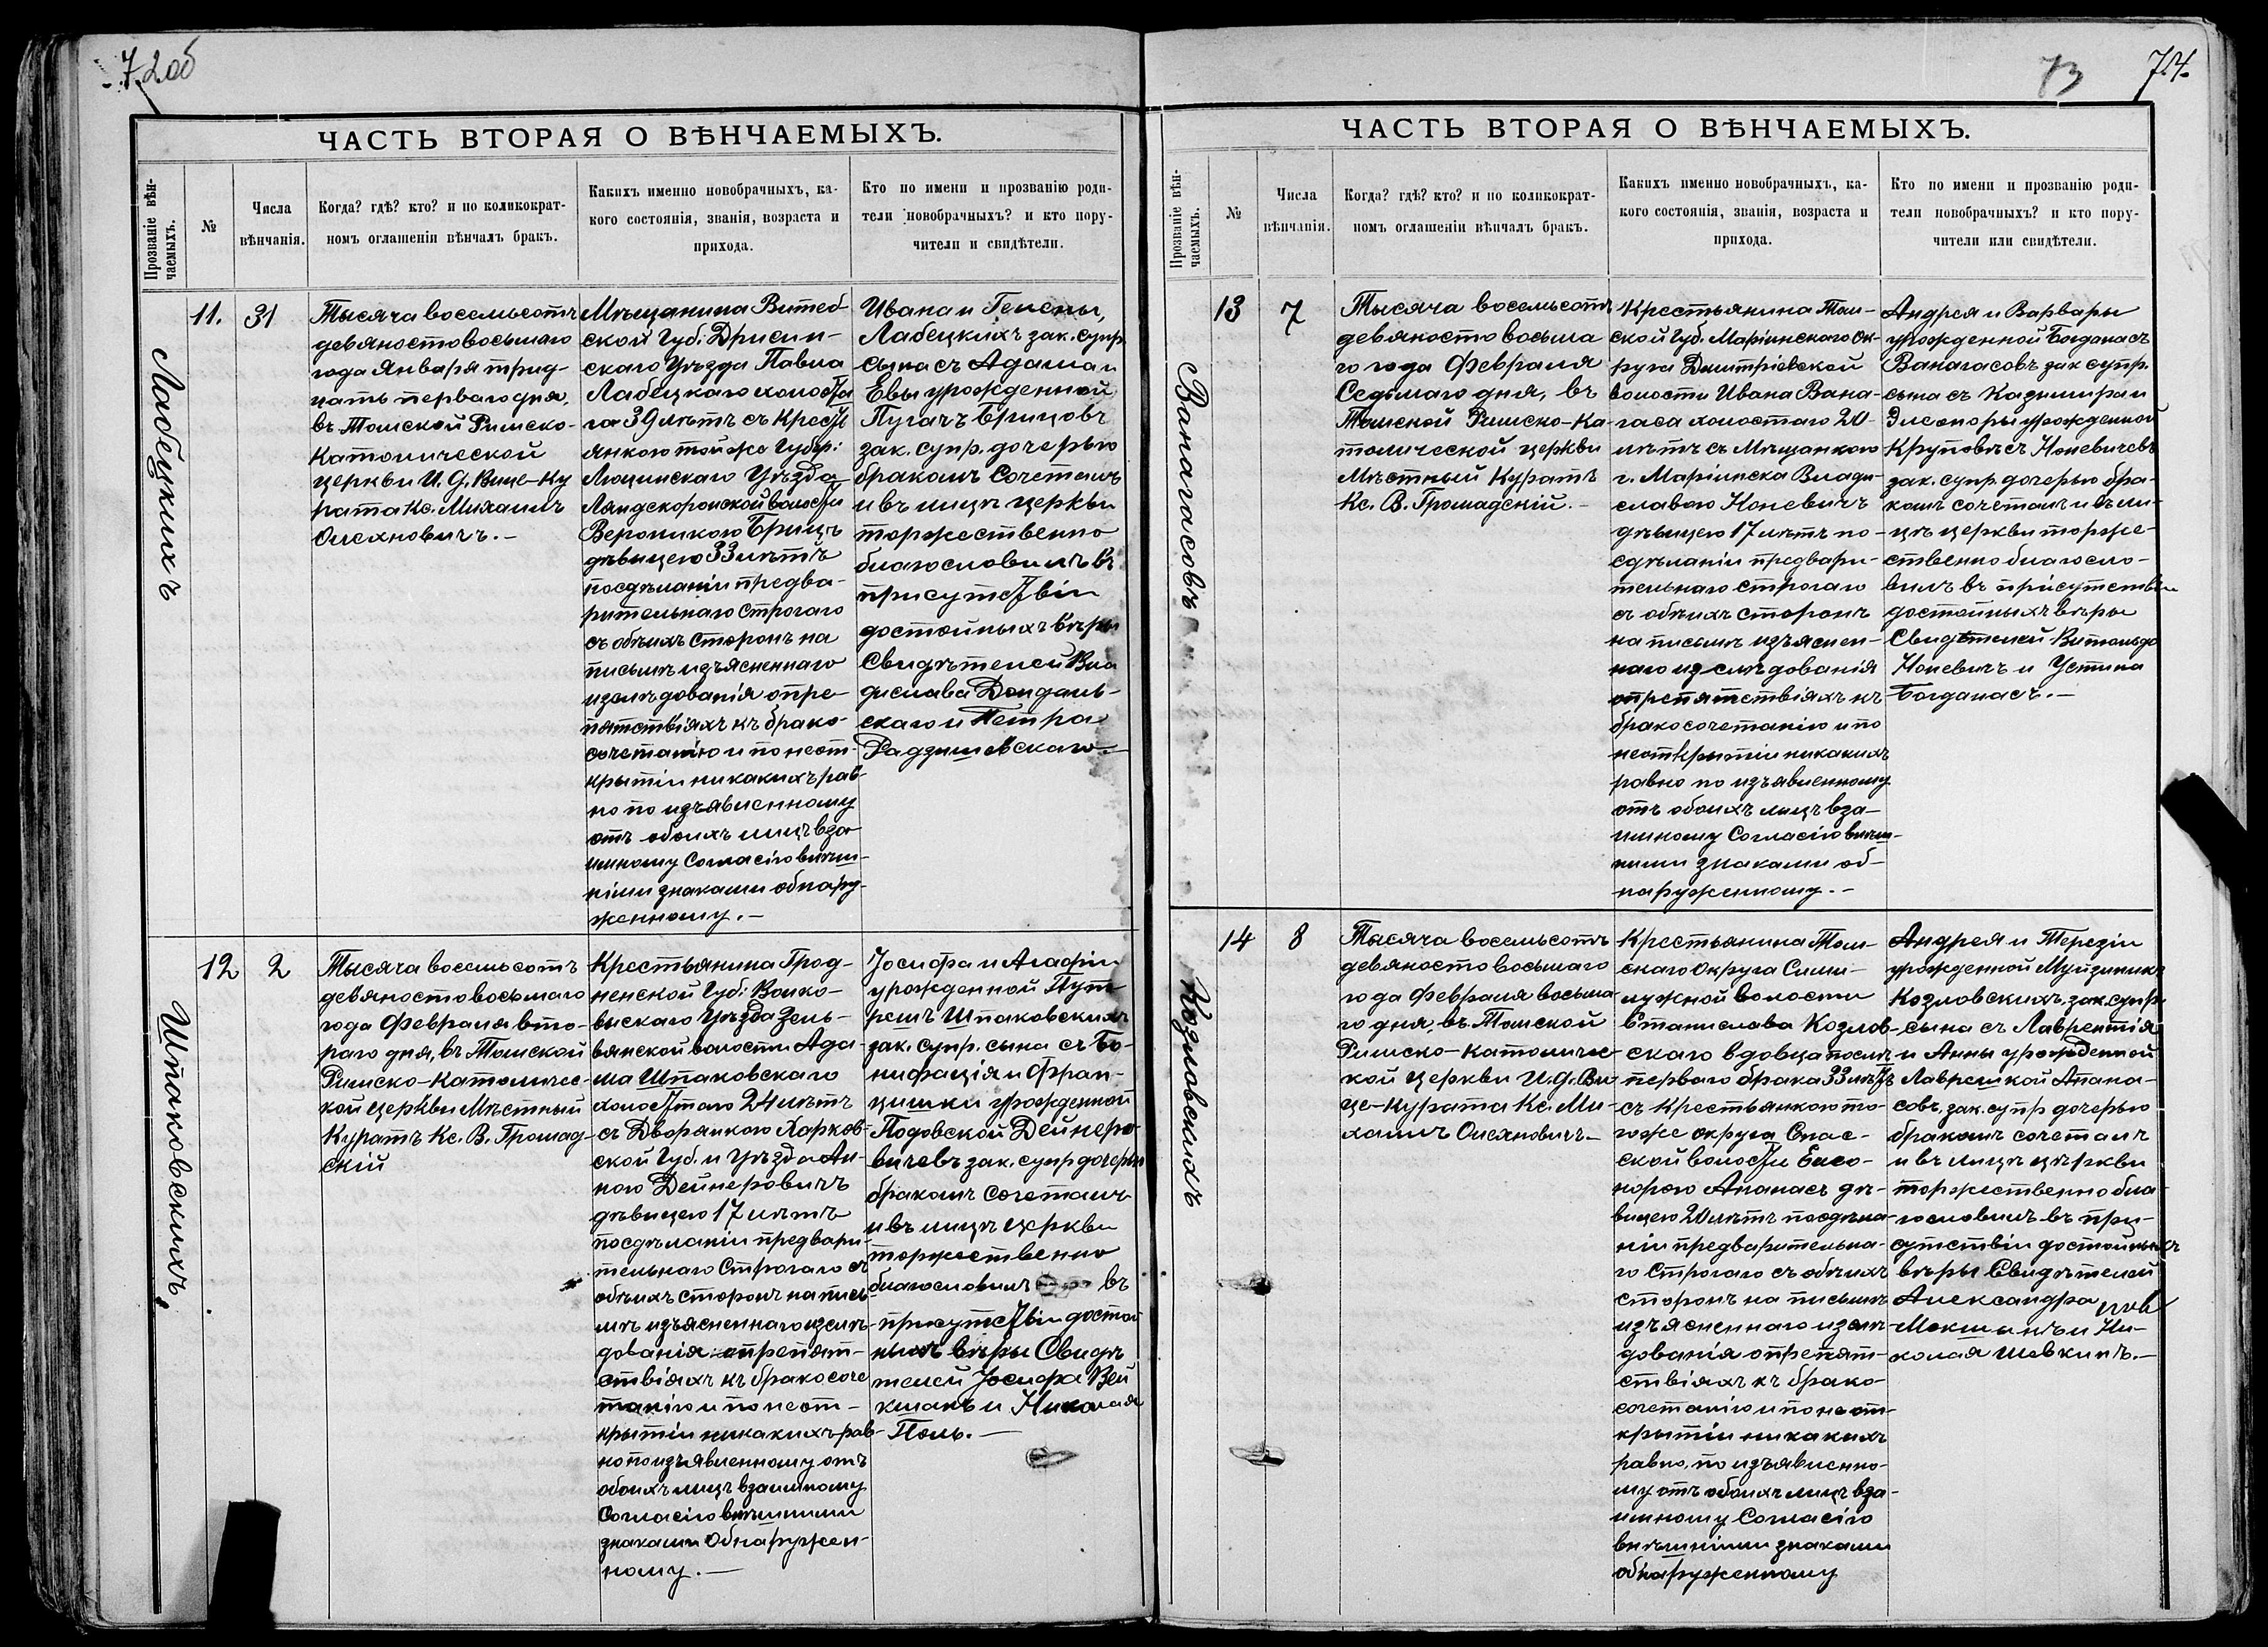 72об
ЧАСТЬ ВТОРАЯ О ВѢНЧАЕМЫХЪ.
Прозваніе вѣн-
чаемыхъ.
№
Числа
вѣнчанія.
Когда? гдѣ? кто? и по коликократ-
номъ оглашеніи вѣнчалъ бракъ.
Какихъ именно новобрачныхъ, ка-
кого состоянія, званія, возраста и
прихода.
Кто по имени и прозванію роди-
тели новобрачныхъ? и кто пору-
чители и свидѣтели.
Лабецкихъ
11.
31
Тысяча восемьсотъ
девяностовосьмаго
года Января трид-
цать перваго дня,
въ Томской Римско-
Католической
церкви И. д. Вице-Ку
рата Кс. Михаилъ
Олехновичъ.-
Мѣщанина Витеб-
ской Губ: Дрисин-
скаго Уѣзда Павла
Лабецкаго холоста
го 39 лѣтъ съ Кресть
янкою той же Губер:
Люцинскаго Уѣзда
Ландскоронской волости
Вероникою Брицъ
дѣвицею 33 лѣтъ
посдѣланіи предва-
рительнаго строгаго
съ обѣихъ сторонъ на
письмѣ изъясненнаго
изслѣдованія опре-
пятствіяхъ къ брако-
сочетанію и по неот-
крытіи никакихъ рав-
но по изъявленному
отъ обоихъ лицъ вза-
имному Согласію внѣш-
німи знаками обнару-
женному.-
Ивана и Гелены,
Лабецкихъ зак. супр.
сына съ Адама и
Евы урожденной
Пугачъ Брицовъ
зак. супр. дочерью
бракомъ сочеталъ
и въ лицѣ церкви
торжественно
благословилъ въ
присутствіи
достойныхъ вѣры
Свидѣтелей Вла
дислава Дондаль-
скаго и Петра
Радзишевскаго-
Шпаковскихъ
12
2
Тысяча восемьсотъ
девяностовосьмаго
года Февраля вто-
раго дня, въ Томской
Римско-Католичес-
кой церкви Мѣстный
Куратъ Кс. В. Громад-
скій
Крестьянина Грод-
ненской Губ: Волко-
выскаго Уѣзда Зель-
вянской волости Ада-
ма Шпаковскаго
холостаго 24 лѣтъ
съ Дворянкою Харков-
ской Губ. и Уѣзда Ан-
ною Дейнеровичъ
дѣвицею 17 лѣтъ
посдѣланіи предвари-
тельнаго Строгаго съ
обѣихъ сторонъ на пись
мѣ изъясненнаго изслѣ-
дованія опрепят-
ствіяхъ къ бракосоче
танію и по неот-
крытіи никакихъ рав-
но по изъявленному отъ
обоихъ лицъ взаимному
Согласію внѣшними
знаками обнаружен-
ному.-
Іосифа и Агафіи
урожденной
Шпаковскихъ
зак. супр. сына съ Бо-
нифація и Фран-
цишки урожденной
Подовской Дейнеро-
вичевъ зак. супр дочерью
бракомъ сочеталъ
и въ лицѣ церкви
торжественно
благословилъ въ
присутствіи достой
ныхъ вѣры Свидѣ
телей Іосифа Вей
кшанъ и Николая
Поль.-
73
74.
ЧАСТЬ ВТОРАЯ О ВѢНЧАЕМЫХЪ.
Прозваніе вѣн-
чаемыхъ.
№
Числа
вѣнчанія.
Когда? гдѣ? кто? и по коликократ-
номъ оглашеніи вѣнчалъ бракъ.
Какихъ именно новобрачныхъ, ка-
кого состоянія, званія, возраста и
прихода.
Кто по имени и прозванію роди-
тели новобрачныхъ? и кто пору-
чители или свидѣтели.
Ванагасовъ
13
7
Тысяча восемьсотъ
девяносто восьма
го года Февраля
Седьмаго дня, въ
Томской Римско-Ка-
толической церкви
Мѣстный Куратъ
Кс. В. Громадскій.-
Крестьянина Том-
ской Губ. Маріинскаго Ок-
руга Дмитріевской
волости Ивана Вана-
гаса холостаго 20
лѣтъ съ Мѣщанкою
г. Маріинска Влади-
славою Коневичъ
дѣвицею 17 лѣтъ по-
сдѣланіи предвари-
тельнаго строгаго
съ обѣихъ сторонъ
на письмѣ изъяснен-
наго изслѣдованія
опрепятствіяхъ къ
бракосочетанію и по
неоткрытіи никакихъ
равно по изъявленному
отъ обоихъ лицъ вза-
имному Согласію внѣш-
ними знаками об-
наруженному.-
Андрея и Варвары
урожденной Богданасъ
Ванагасовъ зак супр.
сына съ Казимира и
Элеоноры урожденной
Круповъ Коневичевъ
зак. супр. дочерью бра-
комъ сочеталъ и въ ли-
цѣ церкви торже-
ственно благосло-
вилъ въ присутствіи
достойныхъ вѣры
Свидѣтелей Витольда
Коневичъ и Устина
Богданасъ.-
Козловскихъ
14
8
Тысяча восемьсотъ
девяностовосьмаго
года Февраля восьма
го дня, въ Томской
Римско-Католичес-
кой церкви И. д. Ви
це-Курата Кс. Ми-
хаилъ Олехновичъ-
Крестьянина Том-
скаго Округа Сими-
лужной волости
Станислава Козлов-
скаго вдовца послѣ
перваго брака 33 лѣтъ
съ Крестьянкою то-
гоже округа Спас-
ской волости Елео-
норою Апанасъ дѣ-
вицею 20 лѣтъ посдѣла-
ніи предварительна-
го Строгаго съ обѣихъ
сторонъ на письмѣ
изъясненнаго изслѣ-
дованія опрепят-
ствіяхъ къ брако-
сочетанію и по неот-
крытіи никакихъ
равно, по изъявленно-
му отъ обоихъ лицъ вза-
имному Согласію
внѣшніми знаками
обнаруженному
Андрея и Терезіи
урожденной
Козловскихъ, зак. супр
сына съ Лаврентія
и Анны урожденной
Апана-
совъ, зак. супр дочерью
бракомъ сочеталъ
и въ лицѣ церкви
торжественно бла-
гословилъ въ при-
сутствіи достойныхъ
вѣры Свидѣтелей
Александра
и Ни-
колая Шевкинъ.-